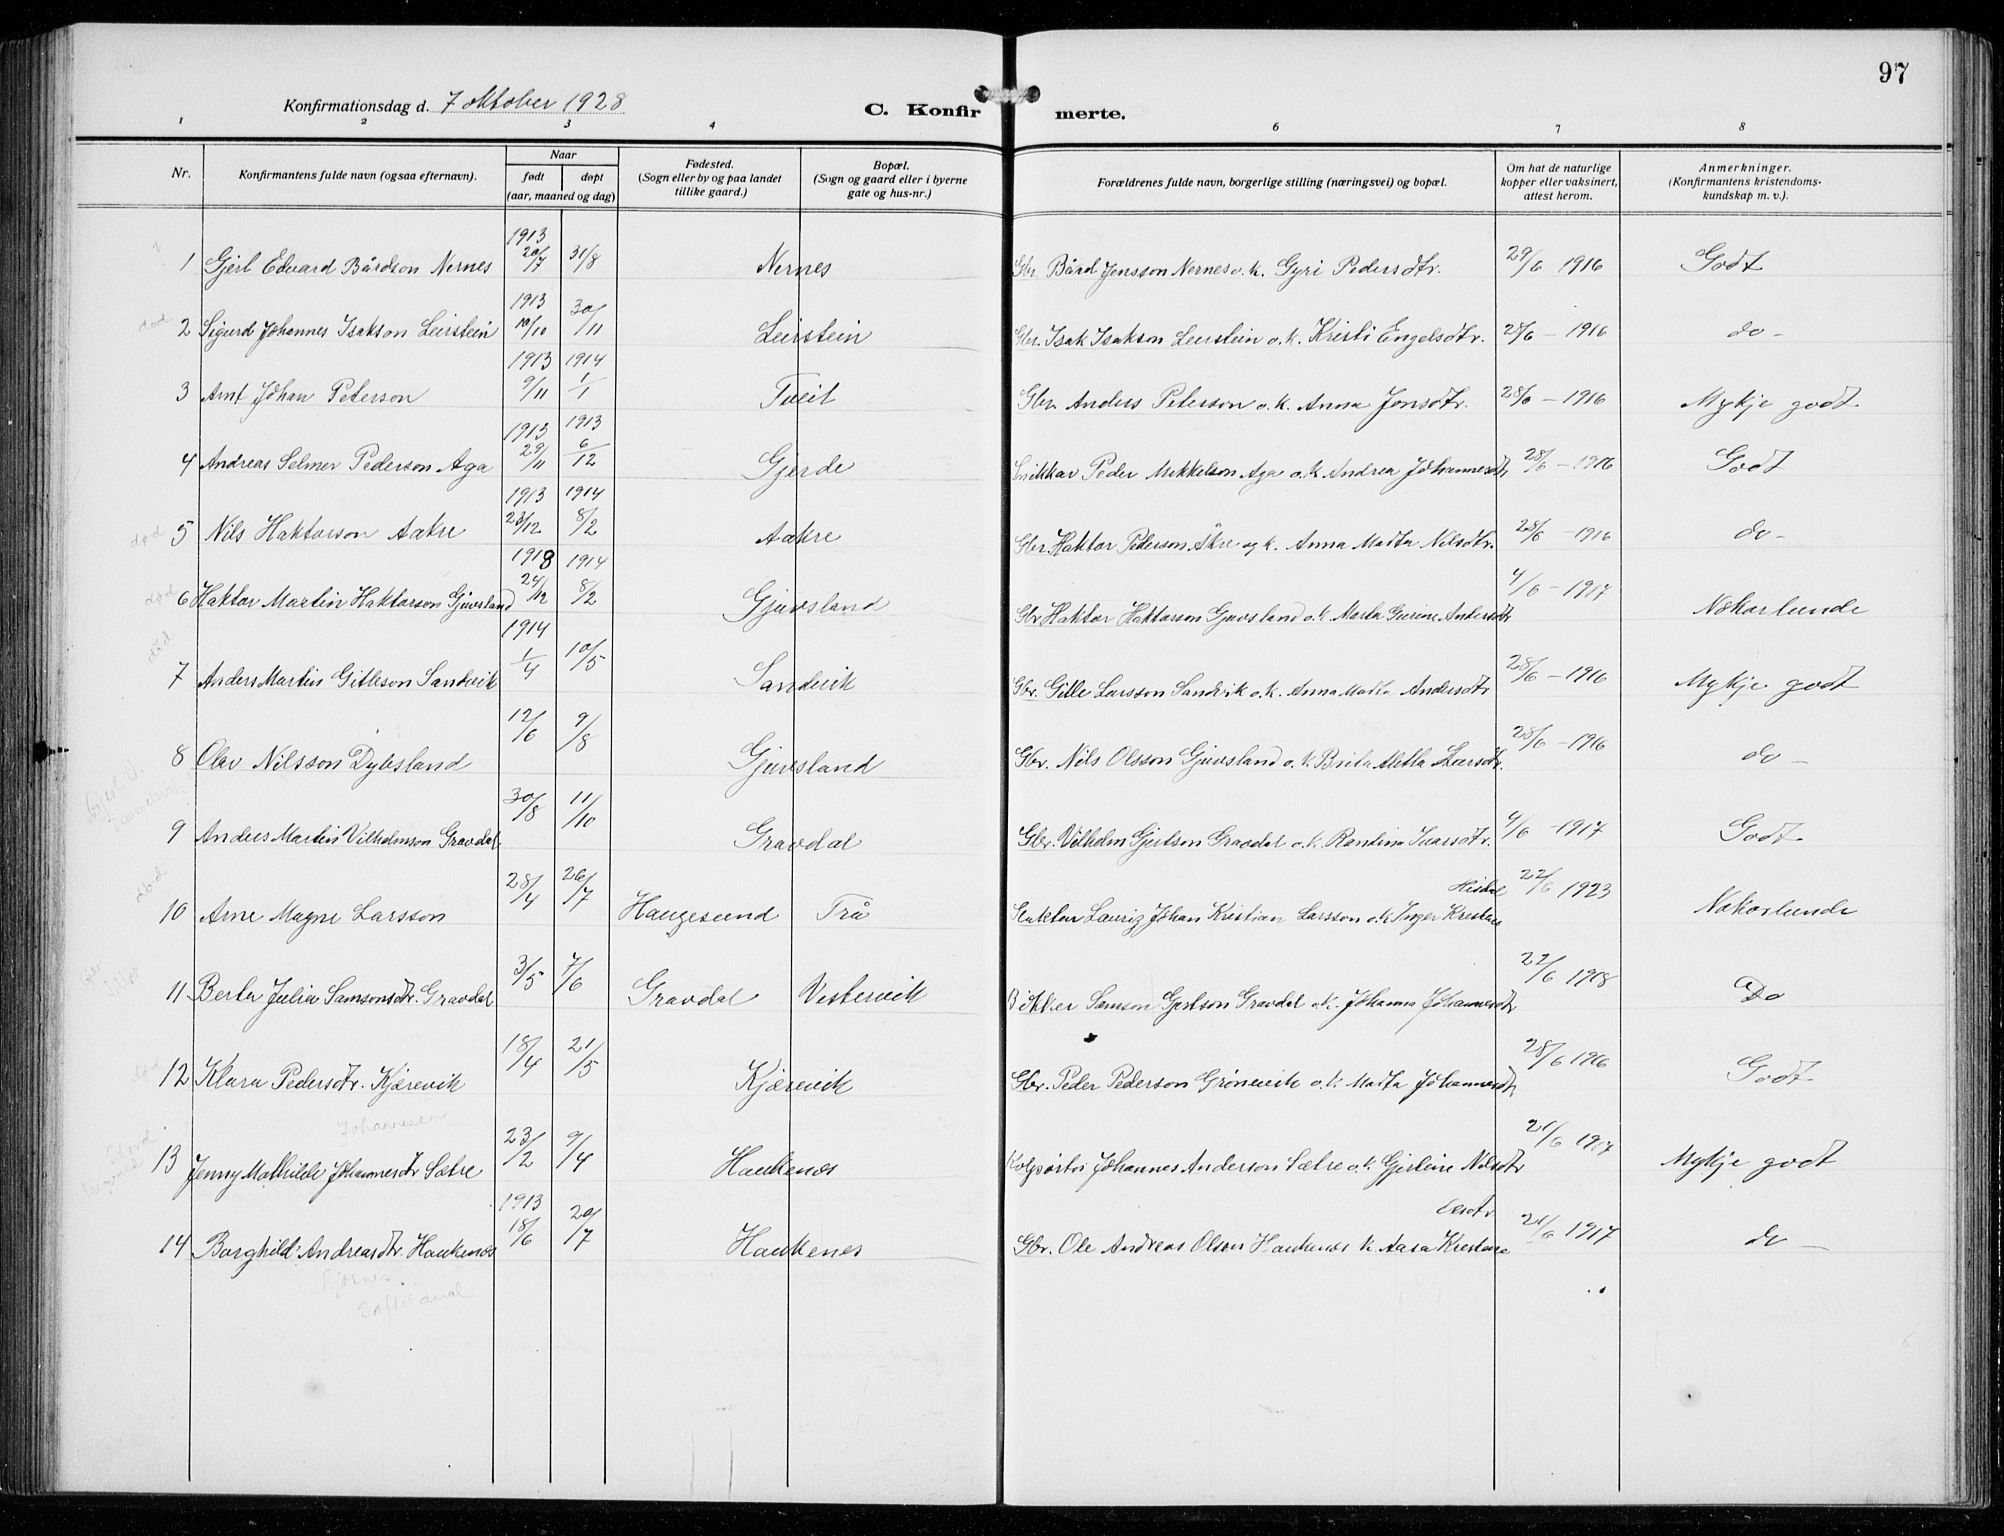 97
Konfirmationsdag d. 7 oktober 1928
C. Konfirmerte.
1 2 3 4 6 7 8
Nr. Konfirmantens fulde navn (ogsaa efternavn). Naar født døpt (aar, maaned og dag) Fødested. (Sogn eller by og paa landet tillike gaard.) Bopæl. (Sogn og gaard eller i byerne gate og hus-nr.) Forældrenes fulde navn, borgerlige stilling (næringsvei) og bopæl. Om hat de naturlige kopper eller vaksinert, attest herom. Anmerkninger. (Konfirmantens kristendoms-kundskap m. v.).
1 Gjert Edvard Bårdson Nernes 1913 20/7 31/8 Nernes Gbr. Bård Jonsson Nernes o.k. Gyri Pedersdtr. 29/6 1916 Godt
2 Sigurd Johannes Isakson Leirstein 1913 10/10 30/11 Leirstein Gbr. Isak Isakson Leirstein o.k. Kristi Engelsdtr. 28/6 – 1916 do –
3 Arnt Johan Peterson 1913 9/11 1914 1/1 Tveit Gbr. Anders Peterson o.k. Anna Jonsdtr. 28/6 – 1916 Mykje godt.
4 Andreas Selmer Pederson Aga 1913 29/11 1913 6/12 Gjerde Snikkar Peder Mikkelson Aga o.k. Andrea Johannesdtr 28/6 – 1916 Godt
5 Nils Haktorson Aakre 1913 23/12 1914 8/2 Aakre Gbr. Haktor Pederson Åkre og k. Anna Madta Nilsdtr. 28/6 – 1916 do –
6 Haktor Martin Haktorson Gjuvsland 1913 24/12 1914 8/2 Gjuvsland Gbr. Haktor Haktorson Gjuvsland o.k. Marta Gurine Andersdtr 4/6 – 1917 Nokorlunde
7 Anders Martin Gitleson Sandvik 1914 1/4 10/5 Sandvik Gbr. Gitle Larsson Sandvik o.k. Anna Madta Andersdtr 28/6 – 1916 Mykje godt
8 Olav Nilsson Dybsland 12/6 9/8 Gjuvsland Gbr. Nils Olsson Gjuvsland o.k. Brita Metta Larsdtr. 28/6 – 1916 do –
9 Anders Martin Vilhelmson Gravdal 30/8 11/10 Gravdal Gbr. Vilhelm Gjertson Gravdal o.k. Rantina Ivarsdtr. 4/6 – 1917 Godt
10 Arne Magne Larsson 28/4 26/7 Haugesund Trå Slaktar Lauriz Johan Kristian Larsson o.k. Inger Kristine 22/6 1923 Nokorlunde
11 Berta Julia Samsonsdtr. Gravdal 3/5 7/6 Gravdal Vestervik Samson Gjertson Gravdal o.k. Johanna Johannesdtr 22/6 1918 Do
12 Klara Pedersdtr. Kjærevik 18/4 21/5 Kjærevik Gbr. Peder Pederson Grönevik o.k. Madta Johannesdtr 28/6 1916 Godt
Johannesen
13 Jenny Mathilde Johannesdtr Sætre 23/2 9/4 Haukenæs Kolportør Johannes Anderson Sætre o.k. Gjertine Nilsdtr 21/6 1917 Mykje godt
14 Borghild Andreasdtr. Haukenæs 1913 18/6 20/7 Haukenes Gbr. Ole Andreas Olson Haukenæs k. Aasa Kristine 21/6 1917 do –